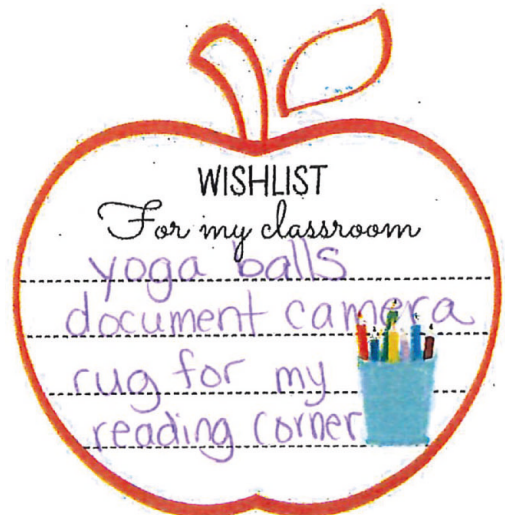 WISHLIST
For my classroom
yoga balls
document camera
rug for my
reading corner